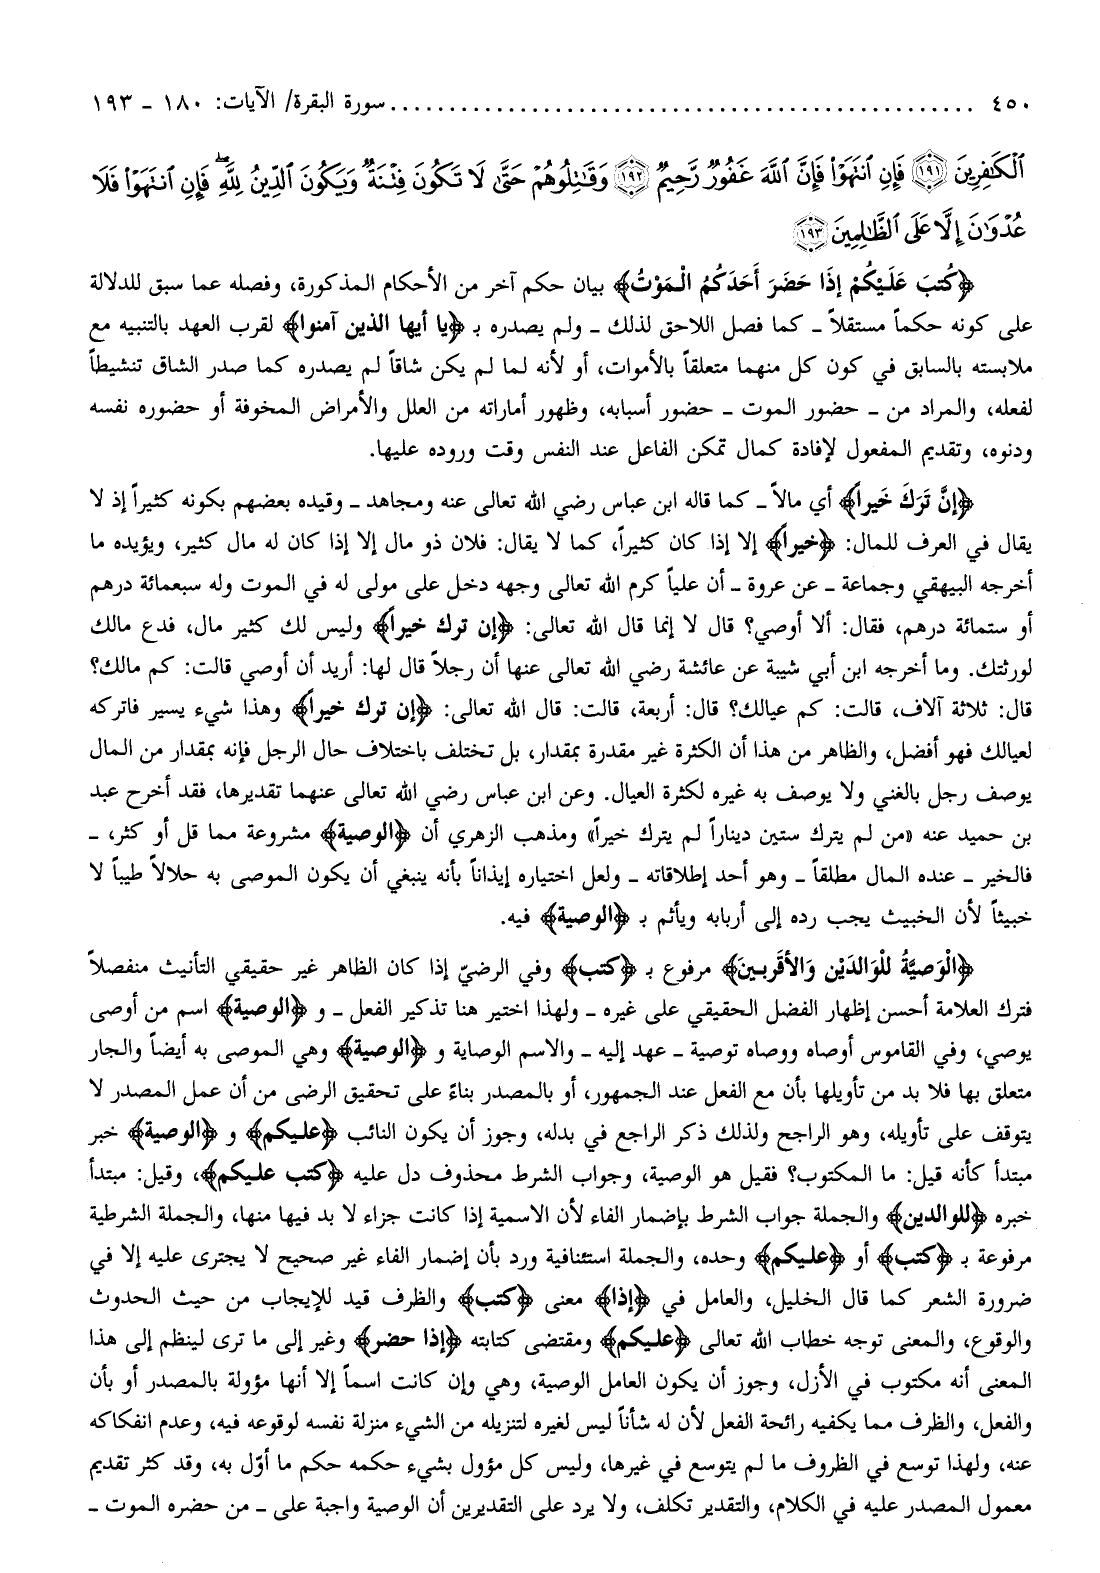 ٤٥٠ ............................................... سورة البقرة/ الآيات: ١٨٠ ـ ١٩٣
ٱلْكَٰفِرِينَ ١٩١ فَإِنِ ٱنتَهَوْا۟ فَإِنَّ ٱللَّهَ غَفُورٌ رَّحِيمٌ ١٩٢ وَقَٰتِلُوهُمْ حَتَّىٰ لَا تَكُونَ فِتْنَةٌ وَيَكُونَ ٱلدِّينُ لِلَّهِ ۖ فَإِنِ ٱنتَهَوْا۟ فَلَا
عُدْوَٰنَ إِلَّا عَلَى ٱلظَّٰلِمِينَ ١٩٣
﴿كُتبَ عَلَيْكُمْ إذَا حَضَرَ أَحَدَكُمُ الْمَوْتُ﴾ بيان حكم آخر من الأحكام المذكورة، وفصله عما سبق للدلالة
على كونه حكماً مستقلاً ـ كما فصل اللاحق لذلك ـ ولم يصدره بـ ﴿يا أيها الذين آمنوا﴾ لقرب العهد بالتنبيه مع
ملابسته بالسابق في كون كل منهما متعلقاً بالأموات، أو لأنه لما لم يكن شاقاً لم يصدره كما صدر الشاق تنشيطاً
لفعله، والمراد من ـ حضور الموت ـ حضور أسبابه، وظهور أماراته من العلل والأمراض المخوفة أو حضوره نفسه
ودنوه، وتقديم المفعول لإفادة كمال تمكن الفاعل عند النفس وقت وروده عليها.
﴿إنَّ تَرَكَ خَيراً﴾ أي مالاً ـ كما قاله ابن عباس رضي الله تعالى عنه ومجاهد ـ وقيده بعضهم بكونه كثيراً إذ لا
يقال في العرف للمال: ﴿خيراً﴾ إلا إذا كان كثيراً، كما لا يقال: فلان ذو مال إلا إذا كان له مال كثير، ويؤيده ما
أخرجه البيهقي وجماعة ـ عن عروة ـ أن علياً كرم الله تعالى وجهه دخل على مولى له في الموت وله سبعمائة درهم
أو ستمائة درهم، فقال: ألا أوصي؟ قال لا إنما قال الله تعالى: ﴿إن ترك خيراً﴾ وليس لك كثير مال، فدع مالك
لورثتك. وما أخرجه ابن أبي شيبة عن عائشة رضي الله تعالى عنها أن رجلاً قال لها: أريد أن أوصي قالت: كم مالك؟
قال: ثلاثة آلاف، قالت: كم عيالك؟ قال: أربعة، قالت: قال الله تعالى: ﴿إن ترك خيراً﴾ وهذا شيء يسير فاتركه
لعيالك فهو أفضل، والظاهر من هذا أن الكثرة غير مقدرة بمقدار، بل تختلف باختلاف حال الرجل فإنه بمقدار من المال
يوصف رجل بالغني ولا يوصف به غيره لكثرة العيال. وعن ابن عباس رضي الله تعالى عنهما تقديرها، فقد أخرج عبد
بن حميد عنه «من لم يترك ستين ديناراً لم يترك خيراً» ومذهب الزهري أن ﴿الوصية﴾ مشروعة مما قل أو كثر، ـ
فالخير ـ عنده المال مطلقاً ـ وهو أحد إطلاقاته ـ ولعل اختياره إيذاناً بأنه ينبغي أن يكون الموصى به حلالاً طيباً لا
خبيثاً لأن الخبيث يجب رده إلى أربابه ويأثم بـ ﴿الوصية﴾ فيه.
﴿الْوَصيَّةُ للْوَالدَيْن وَالأقْرَبينَ﴾ مرفوع بـ ﴿كتب﴾ وفي الرضيّ إذا كان الظاهر غير حقيقي التأنيث منفصلاً
فترك العلامة أحسن إظهار الفضل الحقيقي على غيره ـ ولهذا اختير هنا تذكير الفعل ـ و ﴿الوصية﴾ اسم من أوصى
يوصي، وفي القاموس أوصاه ووصاه توصية ـ عهد إليه ـ والاسم الوصاية و ﴿الوصية﴾ وهي الموصى به أيضاً والجار
متعلق بها فلا بد من تأويلها بأن مع الفعل عند الجمهور، أو بالمصدر بناءً على تحقيق الرضى من أن عمل المصدر لا
يتوقف على تأويله، وهو الراجح ولذلك ذكر الراجع في بدله، وجوز أن يكون النائب ﴿عليكم﴾ و ﴿الوصية﴾ خبر
مبتدأ كأنه قيل: ما المكتوب؟ فقيل هو الوصية، وجواب الشرط محذوف دل عليه ﴿كتب عليكم﴾، وقيل: مبتدأ
خبره ﴿للوالدين﴾ والجملة جواب الشرط بإضمار الفاء لأن الاسمية إذا كانت جزاء لا بد فيها منها، والجملة الشرطية
مرفوعة بـ ﴿كتب﴾ أو ﴿عليكم﴾ وحده، والجملة استئنافية ورد بأن إضمار الفاء غير صحيح لا يجترى عليه إلا في
ضرورة الشعر كما قال الخليل، والعامل في ﴿إذا﴾ معنى ﴿كتب﴾ والظرف قيد للإيجاب من حيث الحدوث
والوقوع، والمعنى توجه خطاب الله تعالى ﴿عليكم﴾ ومقتضى كتابته ﴿إذا حضر﴾ وغير إلى ما ترى لينظم إلى هذا
المعنى أنه مكتوب في الأزل، وجوز أن يكون العامل الوصية، وهي وإن كانت اسماً إلا أنها مؤولة بالمصدر أو بأن
والفعل، والظرف مما يكفيه رائحة الفعل لأن له شأناً ليس لغيره لتنزيله من الشيء منزلة نفسه لوقوعه فيه، وعدم انفكاكه
عنه، ولهذا توسع في الظروف ما لم يتوسع في غيرها، وليس كل مؤول بشيء حكمه حكم ما أوّل به، وقد كثر تقديم
معمول المصدر عليه في الكلام، والتقدير تكلف، ولا يرد على التقديرين أن الوصية واجبة على ـ من حضره الموت ـ